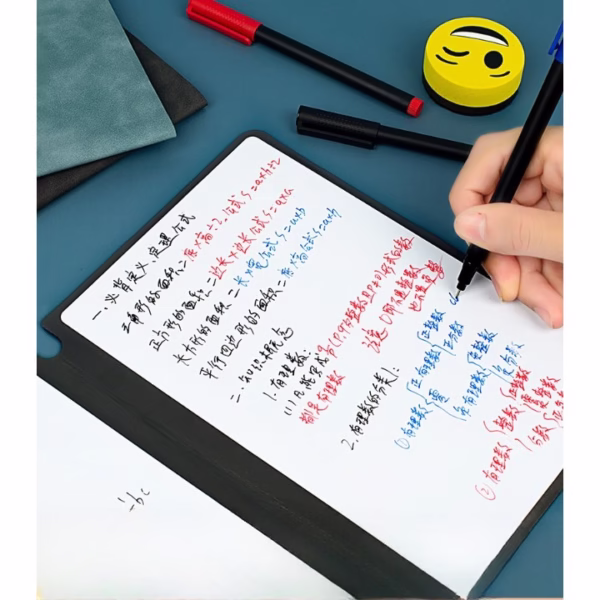 一.必背定义.定理公式
三角形的面积=底×高÷2.公式 S=a×h÷2
正方形的面积=边长×边长 公式 S=a×a
长方形的面积=长×宽 公式 S=a×b
平行四边形的面积=底×高 公式 S=a×h
二.知识概念
1.有理数:
(1)凡能写成 形式的数
都是有理数
2.有理数的分类:
①有理数 正有理数 正整数 正分数
零
负有理数 负整数 负分数
②有理数 整数 正整数 零 负整数
分数